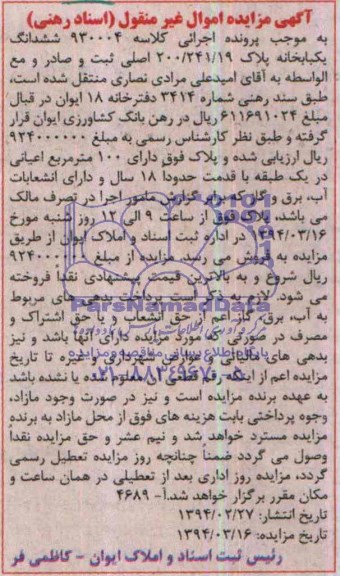 آگهی مزایده اموال غیر منقول (اسناد رهنی)
به موجب پرونده اجرائی کلاسه ۹۳۰۰۰۴ ششدانگ
یکبابخانه پلاک ۲۰۰/۲۴۱/۱۹ اصلی ثبت و صادر و مع
الواسطه به آقای امیدعلی مرادی نصاری منتقل شده است،
طبق سند رهنی شماره ۳۴۱۴ دفترخانه ۱۸ ایوان در قبال
مبلغ ۶۱۱۶۹۱۰۲۴ ریال در رهن بانک کشاورزی ایوان قرار
گرفته و طبق نظر کارشناس رسمی به مبلغ ۹۲۴۰۰۰۰۰۰
ریال ارزیابی شده و پلاک فوق دارای ۱۰۰ مترمربع اعیانی
در یک طبقه با قدمت حدوداً ۱۸ سال و دارای انشعابات
آب، برق و گاز که برابر گزارش مامور اجرا در تصرف مالک
می باشد، پلاک فوق از ساعت ۹ الی ۱۲ روز شنبه مورخ
۱۳۹۴/۰۳/۱۶ در اداره ثبت اسناد و املاک ایوان از طریق
مزایده به فروش می رسد. مزایده از مبلغ
ریال شروع و به بالاترین قیمت پیشنهادی نقداً فروخته
می شود. لازم به ذکر است پرداخت بدهی های مربوط
به آب، برق، گاز اعم از حق انشعاب و یا حق اشتراک و
مصرف در صورتی که مورد مزایده دارای آنها باشد و نیز
بدهی های مالیاتی و عوارض شهرداری و غیره تا تاریخ
مزایده اعم از اینکه رقم قطعی آن معلوم شده یا نشده باشد
به عهده برنده مزایده است و نیز در صورت وجود مازاد،
وجوه پرداختی بابت هزینه های فوق از محل مازاد به برنده
مزایده مسترد خواهد شد و نیم عشر و حق مزایده نقداً
وصول می گردد ضمناً چنانچه روز مزایده تعطیل رسمی
گردد، مزایده روز اداری بعد از تعطیلی در همان ساعت و
مکان مقرر برگزار خواهد شد.آ- ۴۶۸۹
تاریخ انتشار: ۱۳۹۴/۰۲/۲۷
تاریخ مزایده: ۱۳۹۴/۰۳/۱۶
رئیس ثبت اسناد و املاک ایوان - کاظمی فر
ParsNamadData
پایگاه اطلاع رسانی مناقصه و مزایده
۰۲۱-۸۸۳۴۹۶۷۰-۵